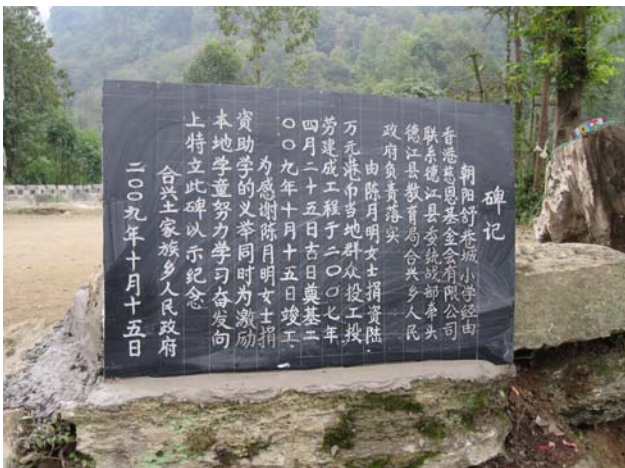 碑记
朝阳舒苍城小学经由
香港慈恩基金会有限公司
联系德江县委统战部牵头
德江县教育局合兴乡人民
政府负责落实
由陈月明女士捐资陆
万元港币当地群众投工投
劳建成工程于二〇〇七年
四月二十五日吉日奠基二
〇〇九年十月十五日竣工
为感谢陈月明女士捐
资助学的义举同时为激励
本地学童努力学习奋发向
上特立此碑以示纪念
合兴土家族乡人民政府
二〇〇九年十月十五日